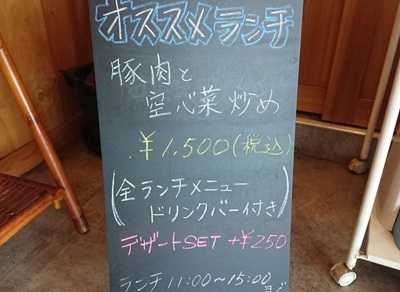 オススメランチ
豚肉と
空心菜炒め
¥1,500(税込)
(全ランチメニュー
ドリンクバー付き)
デザートSET +¥250
ランチ 11:00~15:00